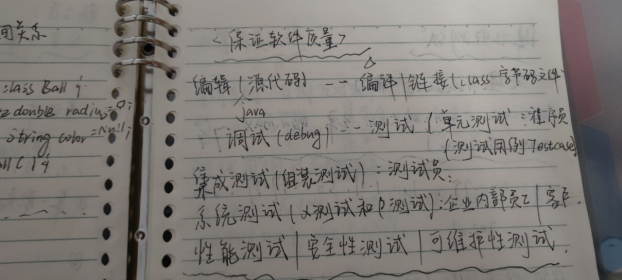 间关系
class Ball {
double radius=0;
string color=null;
<保证软件质量>
编辑(源代码) -- 编译|链接(.class字节码文件
java
调试(debug) -- 测试(单元测试:程序员
(测试用例Testcase)
集成测试(组装测试):测试员;
系统测试(α测试和β测试):企业内部员工|客户.
性能测试|安全性测试|可维护性测试.